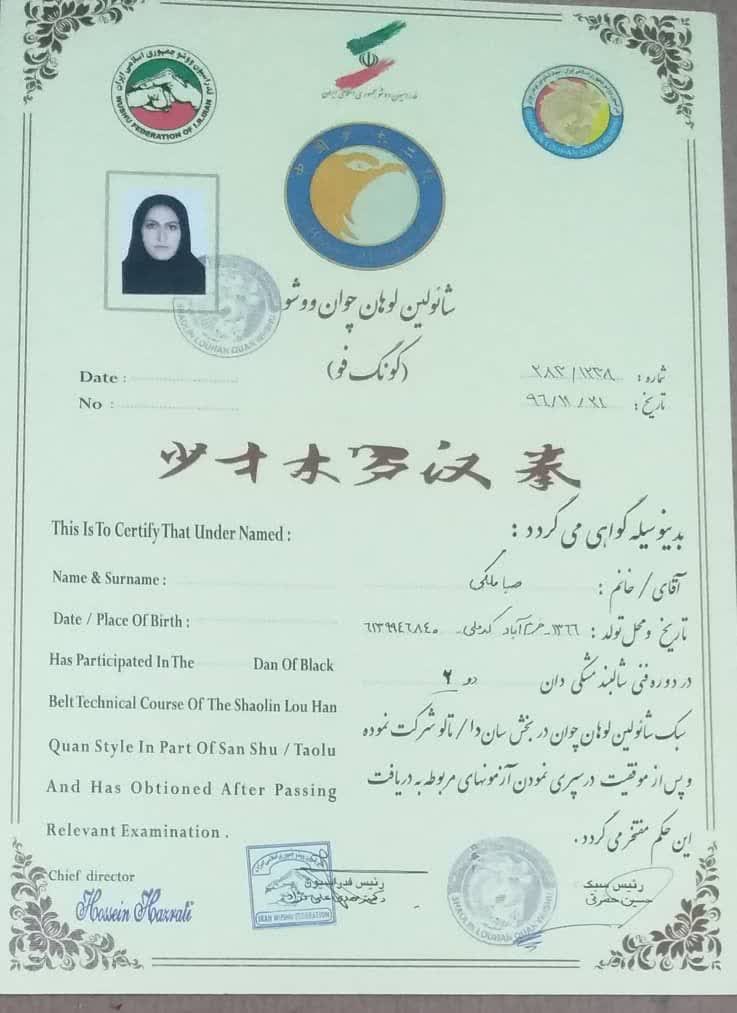 فدراسیون ووشو جمهوری اسلامی ایران
WUSHU FEDERATION OF I.R.IRAN
فدراسیون ووشو جمهوری اسلامی ایران
SHAOLIN LOUHAN QUAN WUSHU
شائولین لوهان چوان ووشو
(کونگ فو)
SHAOLIN LOUHAN QUAN WUSHU
Date :
No :
شماره : ۲۸۳/۱۲۳۸
تاریخ : ۹۶/۱۱/۲۱
少林罗汉拳
This Is To Certify That Under Named :
بدینوسیله گواهی می گردد :
Name & Surname :
آقای / خانم : صبا ملکی
Date / Place Of Birth :
تاریخ و محل تولد : ۱۳۶۶ - خرم آباد کدملی
Has Participated In The Dan Of Black
در دوره فنی شالبند مشکی دان دو ۲
Belt Technical Course Of The Shaolin Lou Han
سبک شائولین لوهان چوان در بخش سان دا / تالو شرکت نموده
Quan Style In Part Of San Shu / Taolu
و پس از موفقیت در سپری نمودن آزمونهای مربوطه به دریافت
And Has Obtioned After Passing
این حکم مفتخر می گردد.
Relevant Examination .
Chief director
Hossein Hazrati
IRAN WUSHU FEDERATION
رئیس فدراسیون
SHAOLIN LOUHAN QUAN WUSHU
رئیس سبک
حسین حضرتی